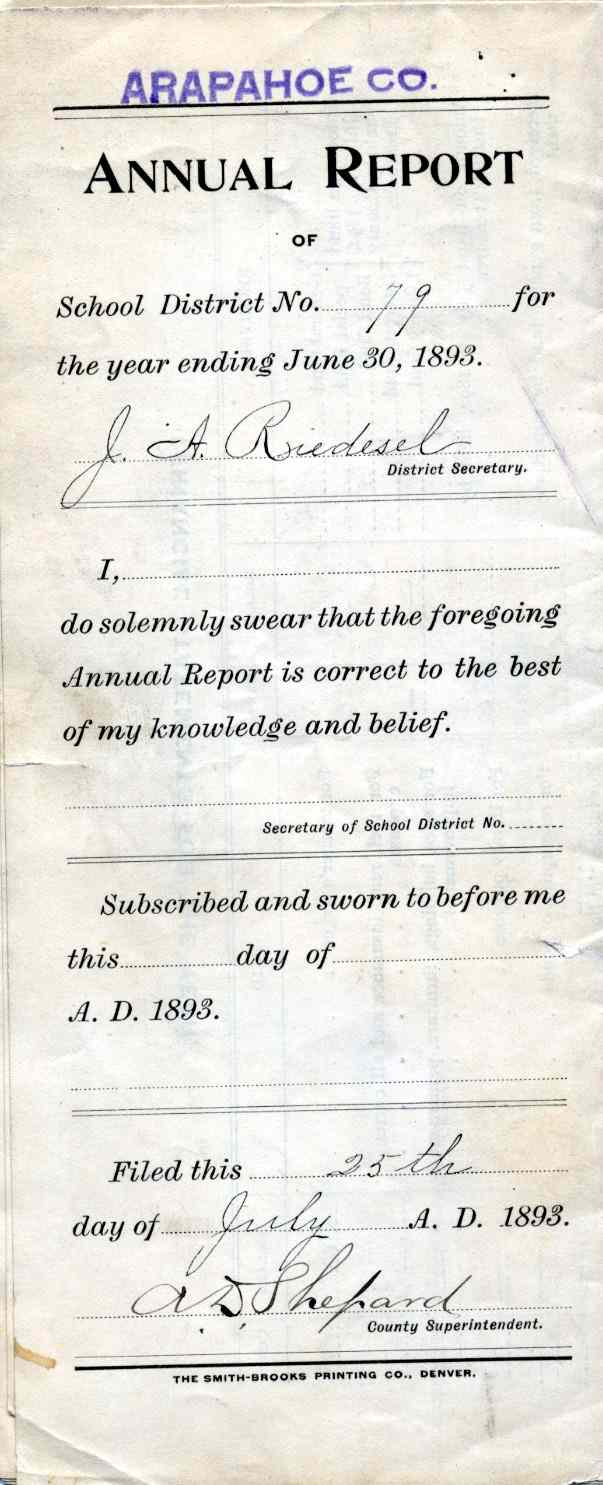 ARAPAHOE CO.
ANNUAL REPORT
OF
School District No. 79 for
the year ending June 30, 1893.
J. A. Riedesel
District Secretary.
I,
do solemnly swear that the foregoing
Annual Report is correct to the best
of my knowledge and belief.
Secretary of School District No.
Subscribed and sworn to before me
this day of
A. D. 1893.
Filed this 25th
day of July A. D. 1893.
A D Shepard
County Superintendent.
THE SMITH-BROOKS PRINTING CO., DENVER.